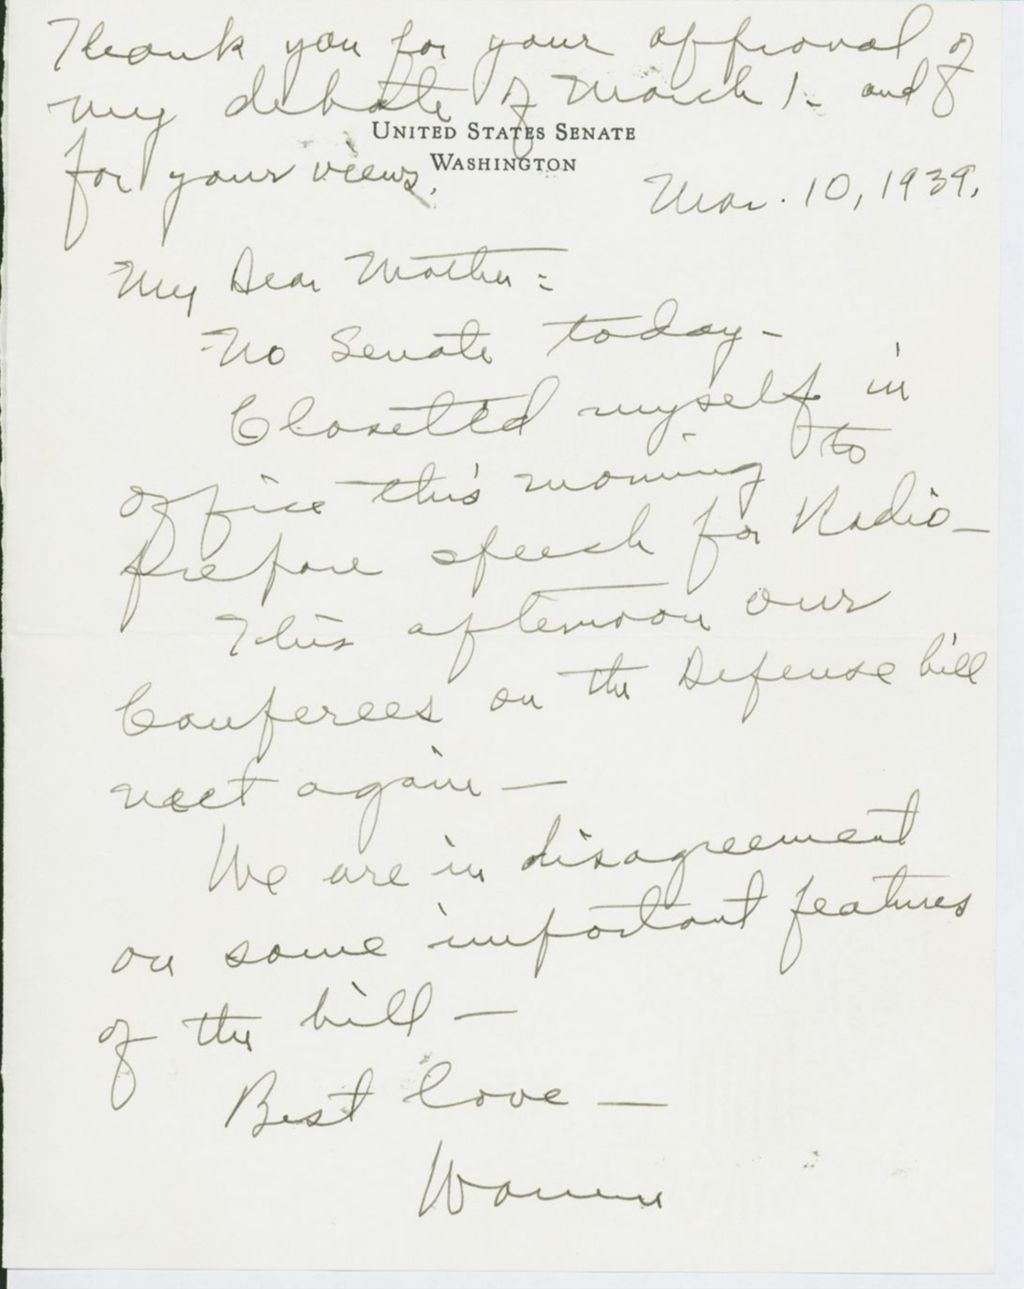 Thank you for your approval of
my debate of March 1. and
UNITED STATES SENATE
WASHINGTON
for your views.
Mar. 10, 1939.
My Dear Mother:
No Senate today-
Closetted myself in
office this morning to
prepare speech for Radio-
This afternoon our
Conferees on the Defense bill
meet again-
We are in disagreement
on some important features
of the bill-
Best love-
Warren